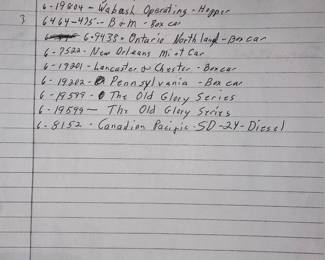 6-19804 - Wabash Operating - Hopper
3 6464-425 - B+M - Boxcar
6-9438 - Ontario Northland - Boxcar
6-7522 - New Orleans Mint Car
6-19201 - Lancaster & Chester - Boxcar
6-19202 - Pennsylvania - Boxcar
6-19599 - The Old Glory Series
6-19599 - The Old Glory Series
6-8152 - Canadian Pacific - SD-24 - Diesel